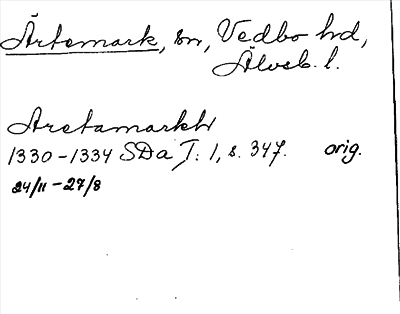 Ärtemark, sn, Vedbo hd,
Älvsb. l.
Aretamarkh
1330-1334 SDa I: 1, s. 347. orig.
24/11-27/8